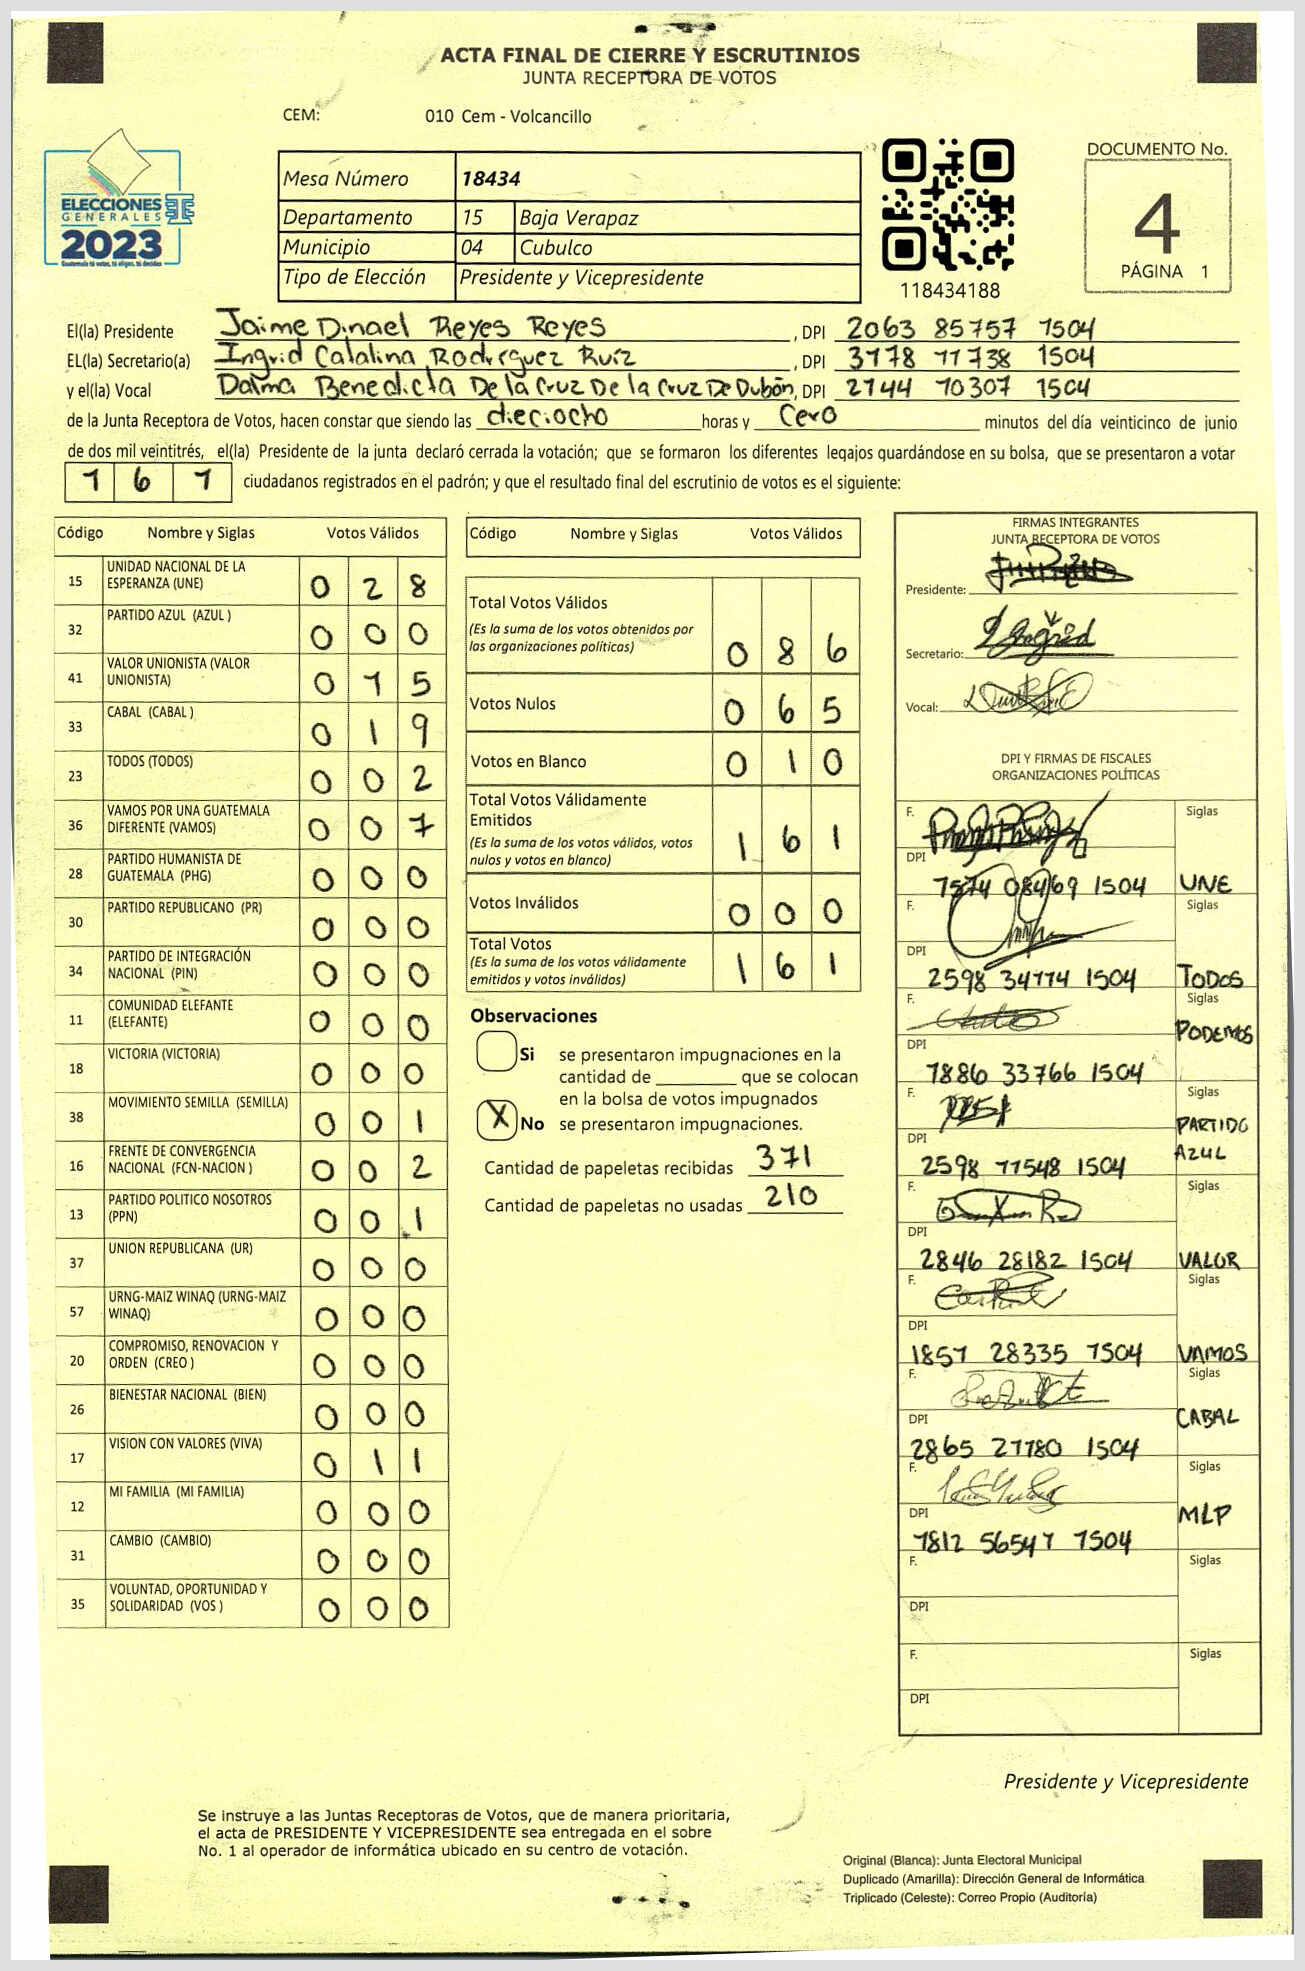 ACTA FINAL DE CIERRE Y ESCRUTINIOS
JUNTA RECEPTORA DE VOTOS
CEM: 010 Cem - Volcancillo
DOCUMENTO No.
4
PÁGINA 1
ELECCIONES
GENERALES
2023
Guatemala tú votas, tú eliges, tú decides
Mesa Número 18434
Departamento 15 Baja Verapaz
Municipio 04 Cubulco
Tipo de Elección Presidente y Vicepresidente
118434188
El(la) Presidente Jaime Dinael Reyes Reyes, DPI 2063 85757 1504
EL(la) Secretario(a) Ingrid Catalina Rodriguez Ruiz, DPI 3178 11738 1504
y el(la) Vocal Dalma Benedicta De la Cruz De la Cruz De Dubón, DPI 2144 10307 1504
de la Junta Receptora de Votos, hacen constar que siendo las dieciocho horas y Cero minutos del día veinticinco de junio
de dos mil veintitrés, el(la) Presidente de la junta declaró cerrada la votación; que se formaron los diferentes legajos guardándose en su bolsa, que se presentaron a votar
1 6 1 ciudadanos registrados en el padrón; y que el resultado final del escrutinio de votos es el siguiente:
Código Nombre y Siglas Votos Válidos
15 UNIDAD NACIONAL DE LA ESPERANZA (UNE) 0 2 8
32 PARTIDO AZUL (AZUL ) 0 0 0
41 VALOR UNIONISTA (VALOR UNIONISTA) 0 1 5
33 CABAL (CABAL ) 0 1 9
23 TODOS (TODOS) 0 0 2
36 VAMOS POR UNA GUATEMALA DIFERENTE (VAMOS) 0 0 7
28 PARTIDO HUMANISTA DE GUATEMALA (PHG) 0 0 0
30 PARTIDO REPUBLICANO (PR) 0 0 0
34 PARTIDO DE INTEGRACIÓN NACIONAL (PIN) 0 0 0
11 COMUNIDAD ELEFANTE (ELEFANTE) 0 0 0
18 VICTORIA (VICTORIA) 0 0 0
38 MOVIMIENTO SEMILLA (SEMILLA) 0 0 1
16 FRENTE DE CONVERGENCIA NACIONAL (FCN-NACION ) 0 0 2
13 PARTIDO POLITICO NOSOTROS (PPN) 0 0 1
37 UNION REPUBLICANA (UR) 0 0 0
57 URNG-MAIZ WINAQ (URNG-MAIZ WINAQ) 0 0 0
20 COMPROMISO, RENOVACION Y ORDEN (CREO ) 0 0 0
26 BIENESTAR NACIONAL (BIEN) 0 0 0
17 VISION CON VALORES (VIVA) 0 1 1
12 MI FAMILIA (MI FAMILIA) 0 0 0
31 CAMBIO (CAMBIO) 0 0 0
35 VOLUNTAD, OPORTUNIDAD Y SOLIDARIDAD (VOS ) 0 0 0
Código Nombre y Siglas Votos Válidos
Total Votos Válidos
(Es la suma de los votos obtenidos por
las organizaciones políticas) 0 8 6
Votos Nulos 0 6 5
Votos en Blanco 0 1 0
Total Votos Válidamente
Emitidos
(Es la suma de los votos válidos, votos
nulos y votos en blanco) 1 6 1
Votos Inválidos 0 0 0
Total Votos
(Es la suma de los votos válidamente
emitidos y votos inválidos) 1 6 1
Observaciones
Si se presentaron impugnaciones en la
cantidad de ________ que se colocan
en la bolsa de votos impugnados
X No se presentaron impugnaciones.
Cantidad de papeletas recibidas 371
Cantidad de papeletas no usadas 210
FIRMAS INTEGRANTES
JUNTA RECEPTORA DE VOTOS
Presidente:
Secretario:
Vocal:
DPI Y FIRMAS DE FISCALES
ORGANIZACIONES POLÍTICAS
F. Siglas
DPI 1574 08469 1504 UNE
F. Siglas
DPI 2598 34774 1504 TODOS
F. Siglas
PODEMOS
DPI 1886 33766 1504
F. Siglas
PARTIDO AZUL
DPI 2598 11548 1504
F. Siglas
DPI 2846 28182 1504 VALOR
F. Siglas
DPI 1851 28335 1504 VAMOS
F. Siglas
CABAL
DPI 2865 21780 1504
F. Siglas
MLP
DPI 1812 56547 1504
F. Siglas
DPI
F. Siglas
DPI
Presidente y Vicepresidente
Se instruye a las Juntas Receptoras de Votos, que de manera prioritaria,
el acta de PRESIDENTE Y VICEPRESIDENTE sea entregada en el sobre
No. 1 al operador de informática ubicado en su centro de votación.
Original (Blanca): Junta Electoral Municipal
Duplicado (Amarilla): Dirección General de Informática
Triplicado (Celeste): Correo Propio (Auditoría)